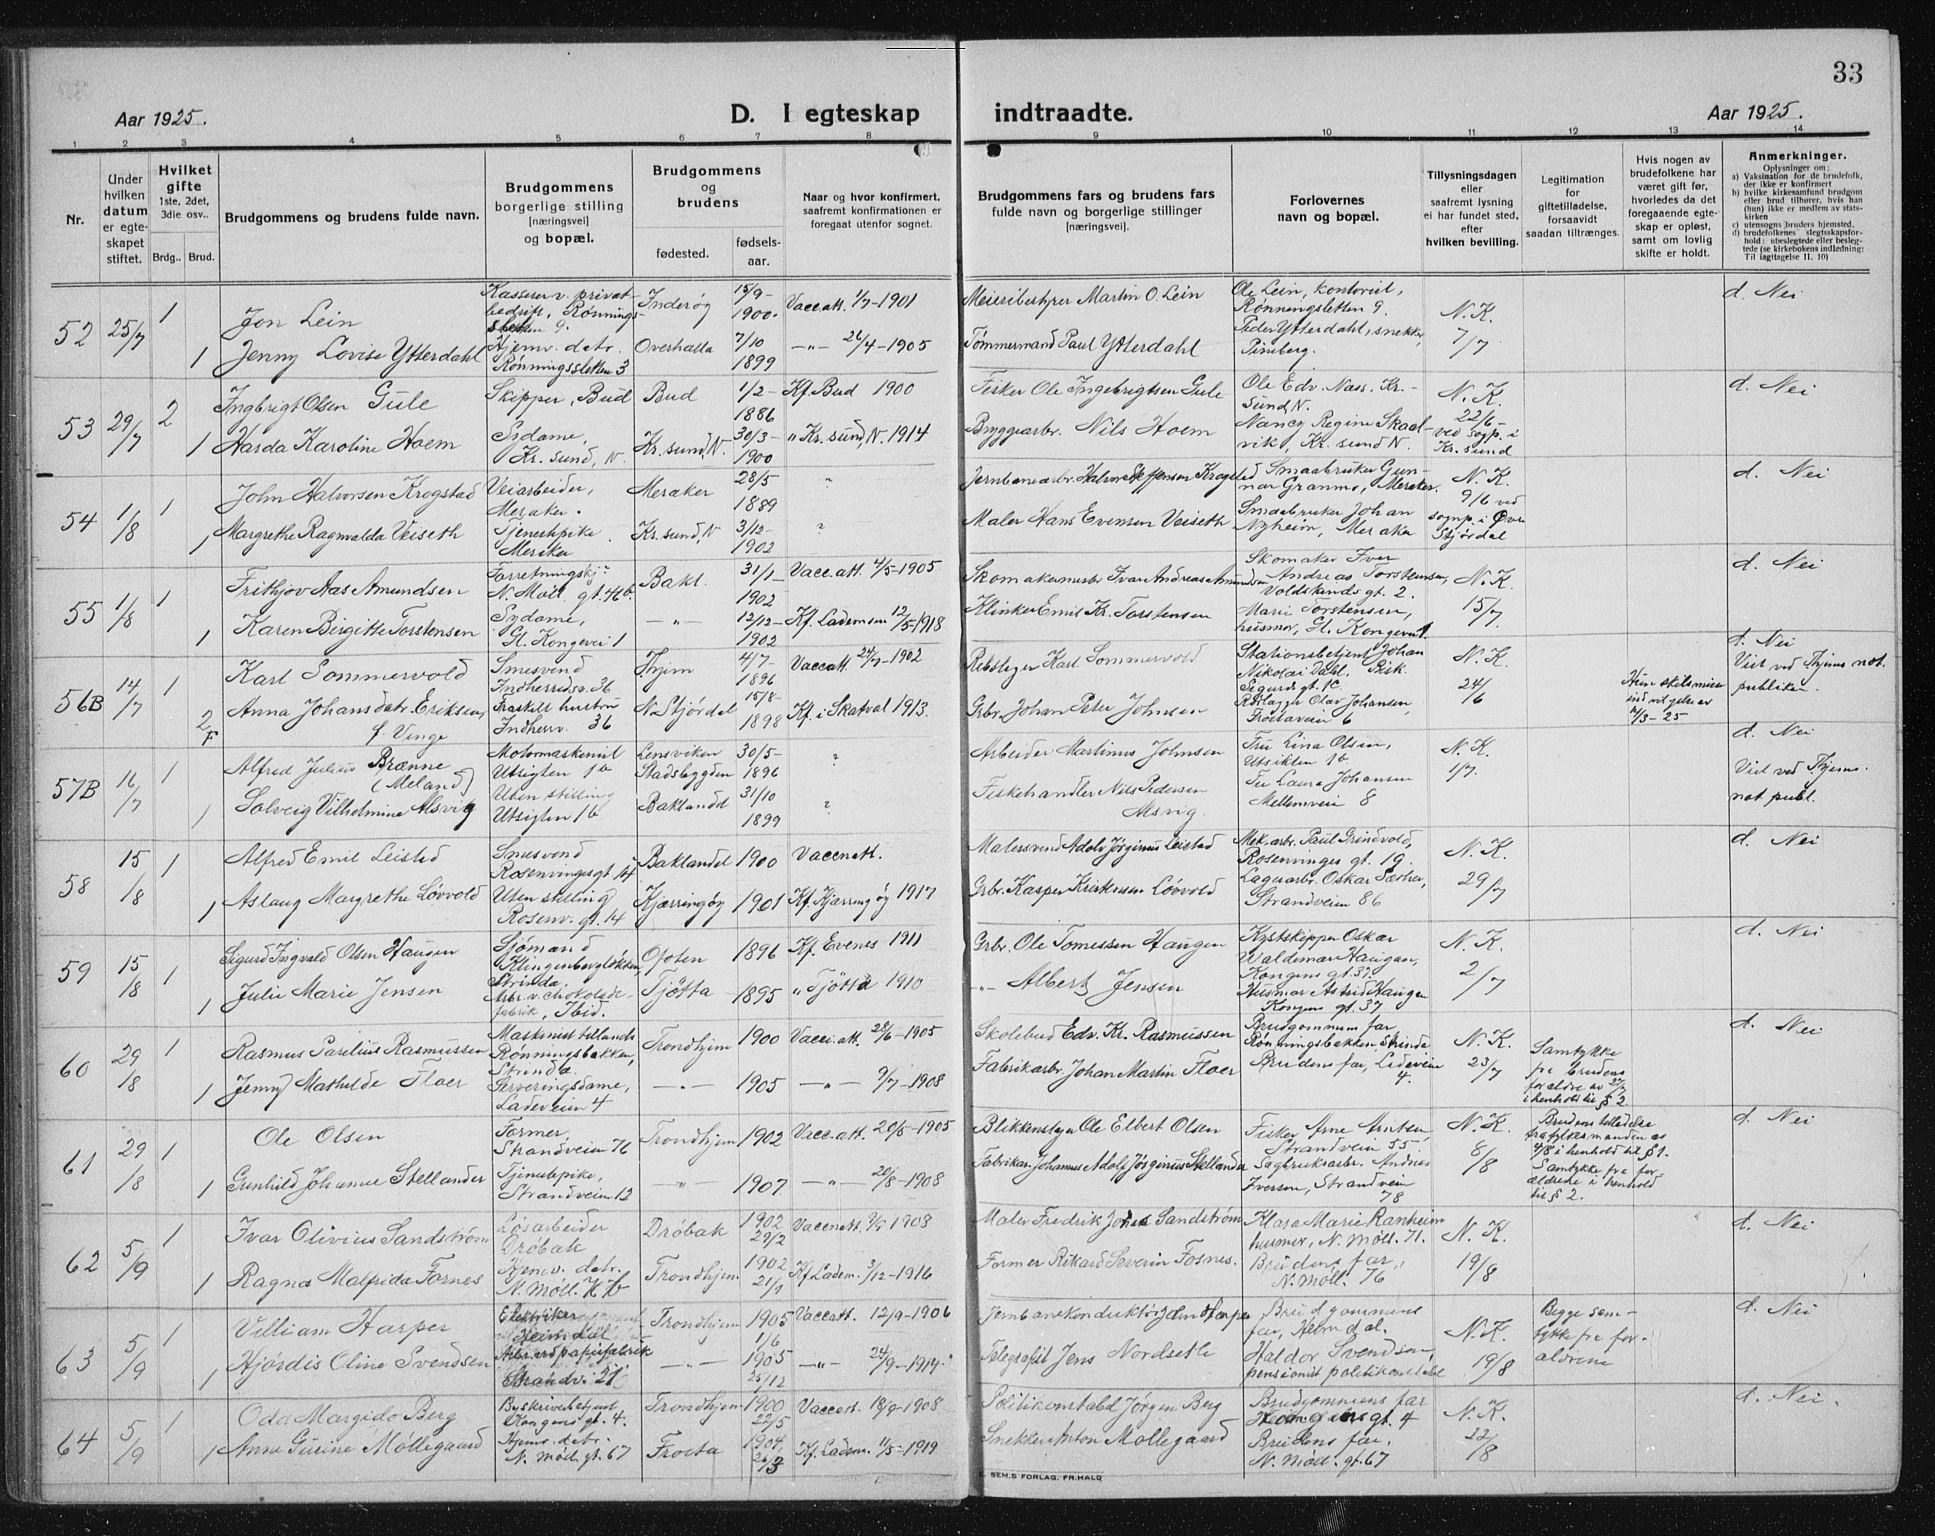 33
Aar 1925.
D. I egteskap indtraadte.
Aar 1925.
1 2 3 4 5 6 7 8 9 10 11 12 13 14
Nr.
Under hvilken datum er egteskapet stiftet.
Hvilket gifte 1ste, 2det, 3die osv..
Brdg.. Brud.
Brudgommens og brudens fulde navn.
Brudgommens borgerlige stilling [næringsvei] og bopæl.
Brudgommens og brudens
fødested.
fødselsaar.
Naar og hvor konfirmert, saafremt konfirmationen er foregaat utenfor sognet.
Brudgommens fars og brudens fars fulde navn og borgerlige stillinger [næringsvei].
Forlovernes navn og bopæl.
Tillysningsdagen eller saafremt lysning ei har fundet sted, efter hvilken bevilling.
Legitimation for giftetilladelse, forsaavidt saadan tiltrænges.
Hvis nogen av brudefolkene har været gift før, hvorledes da det foregaaende egteskap er opløst, samt om lovlig skifte er holdt.
Anmerkninger.
Oplysninger om:
a) Vaksination for de brudefolk, der ikke er konfirmert
b) hvilke kirkesamfund brudgom eller brud tilhører, hvis han (hun) ikke er medlem av statskirken
c) utensogns bruders hjemsted.
d) brudefolkenes slegtsskapsforhold: ubeslegtede eller beslegtede (se kirkebokens indledning: Til iagttagelse II. 10)
52 25/7 1 Jon Lein
Kasserer v. privatbedrift, Rønningsletten 9. Inderøy 15/9-1900. Vacc.att. 1/7-1901
Meieribestyrer Martin O. Lein
Ole Lein, kontorist, Rønningsletten 9.
N. K. 7/7
d. Nei
1 Jenny Lovise Ytterdahl
Hjemv. datr. Rønningsletten 3 Overhalla 7/10 1899 -"- 26/4-1905
Tømmermand Paul Ytterdahl
Peder Ytterdahl, snekker,
53 29/7 2 Ingbrigt Olsen Gule
Skipper, Bud Bud 1/2-1886 Kf. Bud 1900
Fisker Ole Ingebrigtsen Gule
Ole Edv. Nass, Kr.sund N.
N. K. 22/6- ved sogp. i Kr. sund
d. Nei
1 Harda Karoline Hoem
Sydame, Kr. sund, N. Kr. sund, N. 30/3-1900 " Kr. sund, N. 1914
Bryggearbr. Nils Hoem
Nancy Regine Skaalvik, Kr. sund N.
54 1/8 1 John Halvorsen Krogstad
Veiarbeider, Meraker. Meraker 28/5 1889 "
Jernbanearbr. Halvor Steffensen Krogstad
Smaabruker Gunnar Granmo, Meraker.
N. K. 9/6 ved sognp. i Øvre Stjørdal
d. Nei
1 Margrethe Ragnvalda Veiseth
Tjenestpike Meraker Kr. sund, N 3/12-1902 "
Maler Hans Evensen Veiseth
Smaabruker Johan Nyheim, Meraker
55 1/8 1 Frithjov Aas Amundsen
Forretningsbj. N. Møll. gt. 46b. Bakl. 31/1 1902 Vacc. att. 4/5-1905
Skomakermester Ivar Andreas Amundsen
Skomaker Iver Andreas Torstensen, Voldsminds gt. 2.
N. K. 15/7.
d. Nei
1 Karen Birgitte Torstensen
Sydame, Gl. Kongevei 1 -"- 12/12-1902 Kf. Lademoen 12/5-1918
Klinker Emil Kr. Torstensen
Marie Torstensen, husmor, Gl. Kongevei 1
56B 14/7 1 Karl Sommervold
Smesvend Indherredsv. 36 Thjem 4/7-1896 Vaccatt. 24/7-1902
Rebslager Karl Sommervold
Stationsbetjent Johan Nikolai Dahl, Bisk. Sigurds gt. 1c
N. K. 24/6
d. Nei Viet ved Thjems not. publiken.
2 F Anna Johansdatr. Eriksen, f. Vinge
Fraskilt hustru Indherrv. 36 N. Stjørdal 15/8-1898 Kf. i Skatval 1913.
Grbr. Johan Peter Johnsen
Olav Johansen, Frostaveien 6
57B 16/7 1 Alfred Julius Brænne (Meland)
Motormaskinist Utsigten 1b Lensviken Stadsbygden 30/5-1896 "
Arbeider Martinus Johnsen
Fru Lina Olsen, Utsikten 1b
N. K. 1/7.
d. Nei Viet ved Thjems. not. publ.
1 Solveig Vilhelmine Alsvig
Uten stilling Utsigten 1b Baklandd 31/10 1899 "
Fiskehandler Nils Pedersen Alsvig.
Fru Laura Johansen Mellemveien 8
58 15/8 1 Alfred Emil Leistad
Smesvend Rosenvingesgt. 14 Baklandet 1900 Vaccnatt.
Malersvend Adolv Jørginus Leistad
Mek. arbr. Paul Grindvold, Rosenvinges gt. 19.
N. K. 29/7
d. Nei
1 Aslaug Margrethe Løvvold
Uten stilling Rosenv. gt. 14 Kjærringøy 1901 Kf. Kjærringøy 1917
Grbr. Kasper Kristensen Løvvold
Lagerarbr. Oskar Sæther, Strandveien 86
59 15/8 1 Sigurd Ingvald Olsen Haugen
Sjømand Klingenbergløkken, Strinda. Ofoten 1896 Kf. Evenes 1911
Grbr. Ole Tomessen Haugen
Kystskipper Oskar Waldemar Haugan, Kongens gt. 37.
N. K. 2/7
d. Nei
1 Julie Marie Jensen
Arbr. v. chokoladefabrik, Ibid. Tjøtta 1895 " Tjøtta 1910
-"- Albert Jensen
Husmor Astrid Haugen Kongens gt. 37
60 29/8 1 Rasmus Parelius Rasmussen
Rønningsbakken, Strinda. Trondhjem 1900 Vacc. att. 28/6-1905
Skolebud Edv. Kr. Rasmussen
Brudgommens far, Rønningsbakken Strinda
N. K. 23/7
Samtykke fra brudens foraldre av 27/7 i henhold til § 2.
d. Nei
1 Jenny Mathilde Floer
Serveringsdame, Ladeveien 4 -"- 1905 -"- 9/7-1908
Fabrikarbr. Johan Martin Floer
Brudens far, Ladeveien 4.
61 29/8 1 Ole Olsen
Former Strandveien 76 Trondhjem 1902 Vacc. att. 20/5-1905
Blikkenslager Ole Elbert Olsen
Fisker Arne Arntsen, Strandveien 55.
N. K. 8/8
Brudens tilladelse fra fylkesmanden av 4/8 i henhold til § 1. Samtykke fra forældrene i henhold til § 2.
d. Nei
1 Gunhild Johanne Stellander
Tjenestepike, Strandveien 12 -"- 1907 -"- 20/8-1908
Fabrikar. Johannes Adolf Jørginus Stellander
Sagbruksarbr. Andreas Iversen, Strandveien 78
62 5/9 1 Ivar Olivius Sandstrøm
Løsarbeider Drøbak Drøbak 1902 29/2 Vaccnatt. 9/8 1908
Maler Fredrik Johns Sandstrøm
Klara Marie Ranheim husmor, N. Møll. 71.
N. K. 19/8
d. Nei
1 Ragna Malfrida Fornes
Hjemv. datr. N. Møll. 76 Trondhjem 1902 21/9 Kf. Ladem. 3/12-1916
Former Rikard Severin Fosnes.
Brudens far, N. Møll. 76
63 5/9 1 Villiam Harper
Elektriker Heimdal Trondhjem 1905 1/6 Vaccatt. 12/9-1906
Jernbanekonduktør John Harper
Brudgommens far, Heimdal.
N. K. 19/8
Begge samtykke fra foraldrene
d. Nei
1 Hjørdis Oline Svendsen
Arb. ved papirfabrik Strandv. 21 -"- 1905 25/12 -"- 24/9-1914.
Telegrafist Jens Nordseth
Haldor Svendsen, pensionist politikonstabel
64 5/9 1 Oda Margido Berg
Byskriverbetjent, Kongens gt. 4. Trondhjem 1900 22/5 Vaccatt. 18/9-1908
Politikonstabel Jørgen Berg
Brudgommens far Kongens gt. 4
N. K. 22/8
d. Nei.
1 Anne Gurine Møllegaard
Hjemv. datr. N. Møll. gt. 67 Frosta 1904 26/3 Kf. Ladem. 1/5-1919
Snekker Anton Møllegaard
Brudens far, N. Møll. gt. 67
E. SEM,S FORLAG, FR.HALD